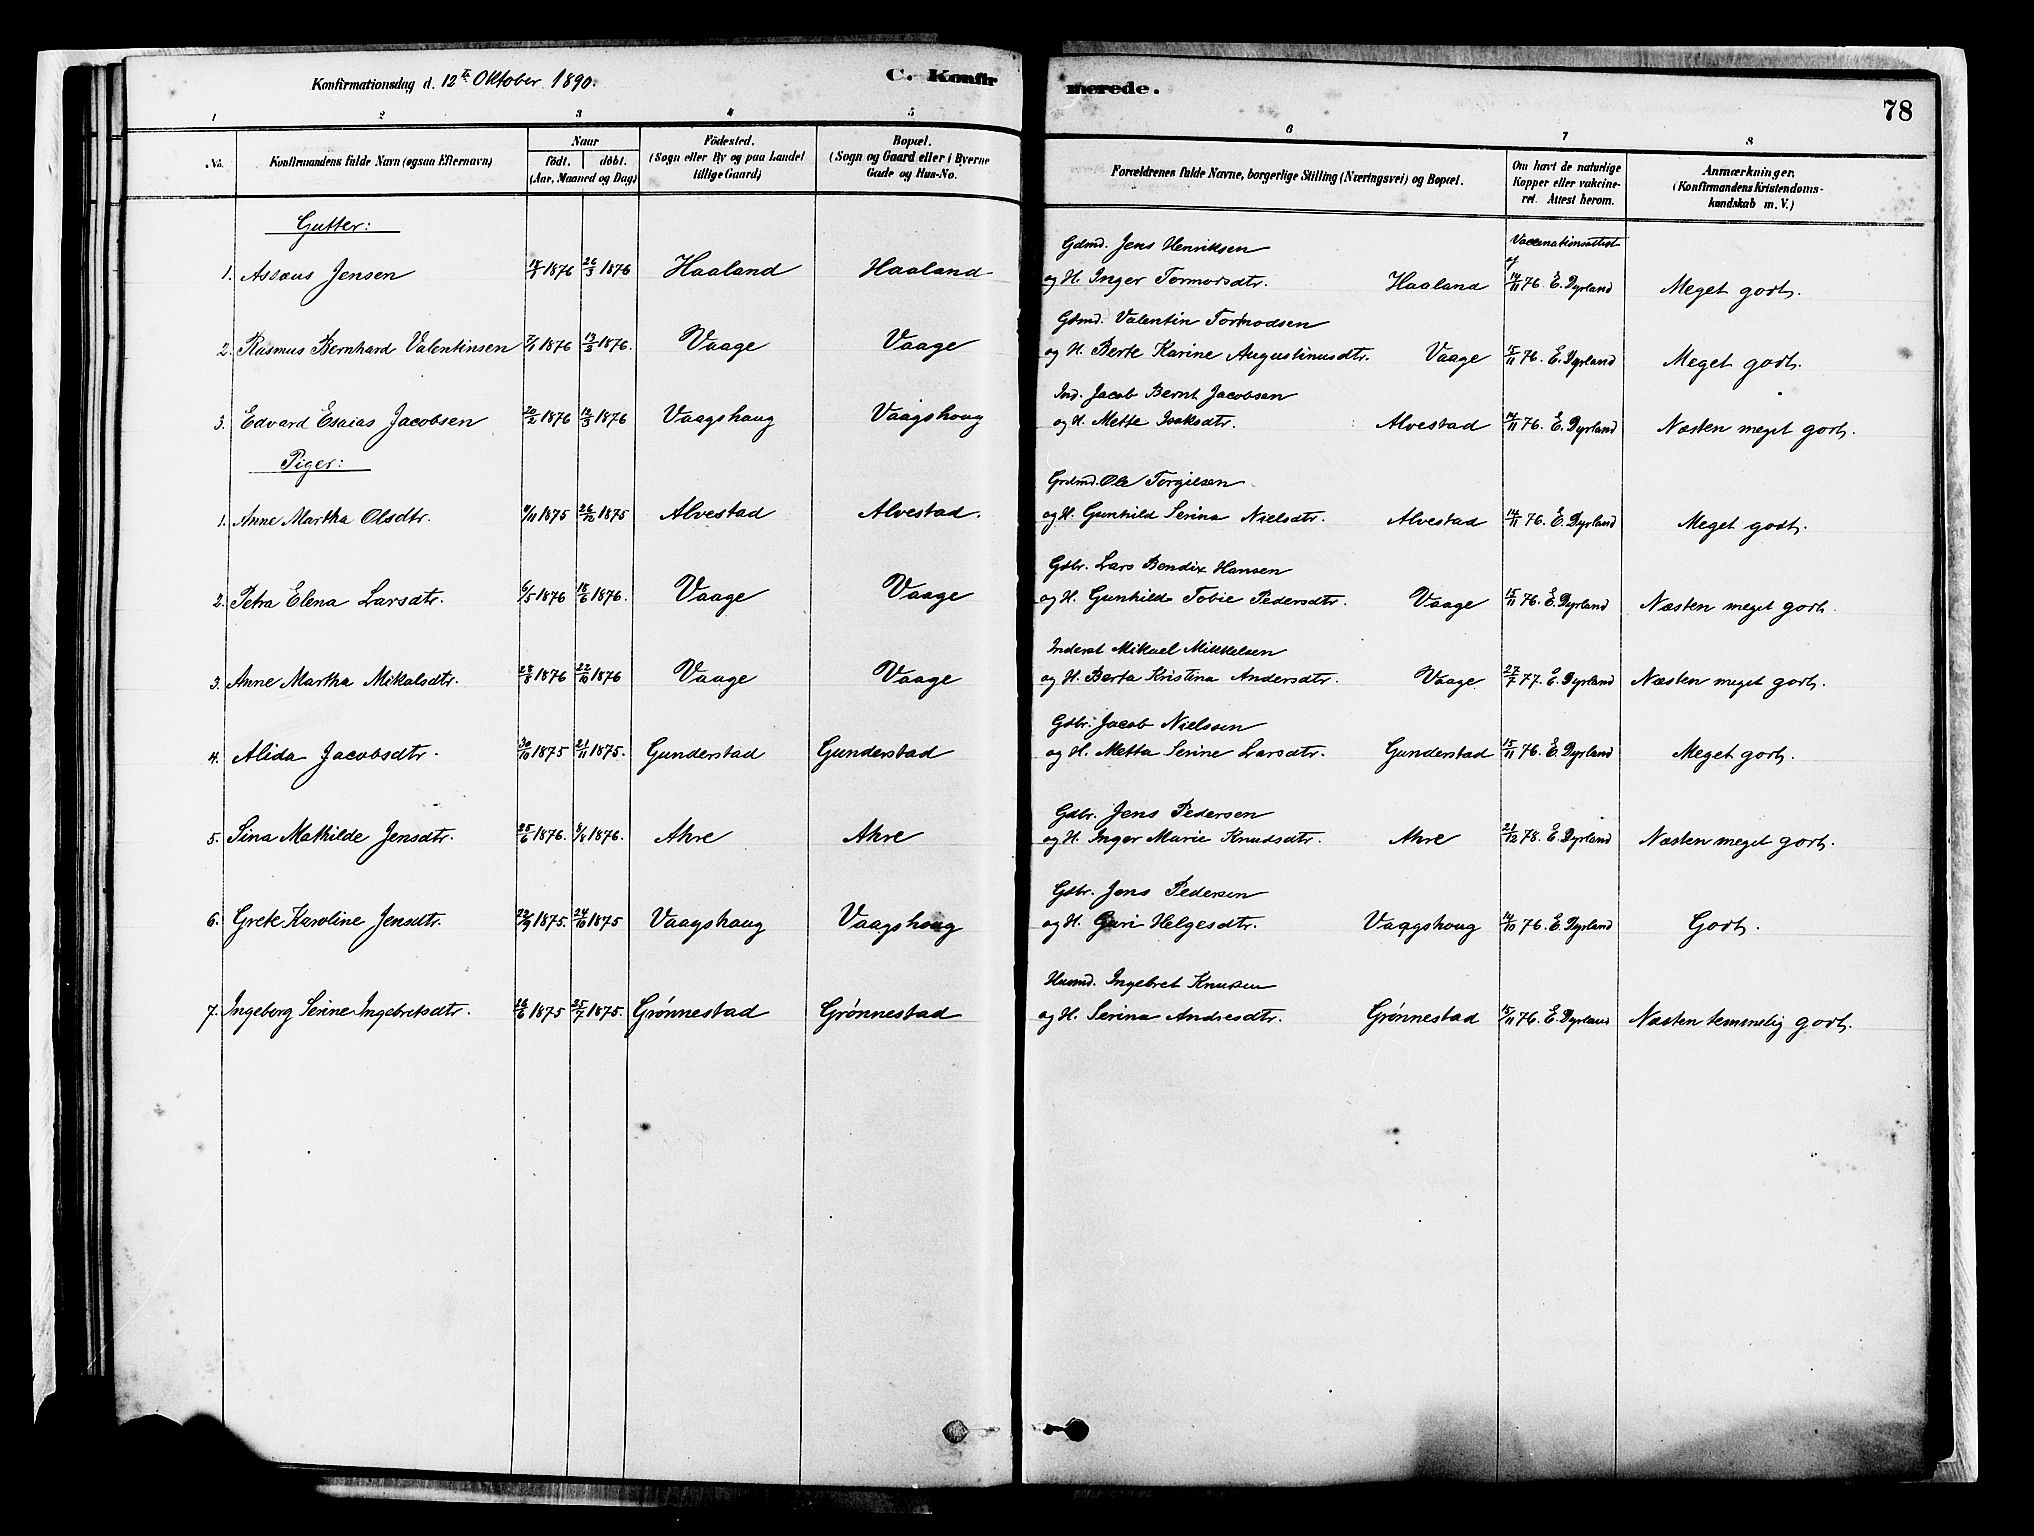 Konfirmationsdag d. 12te Oktober 1890.
C. Konfir merede.
78
1 2 3 4 5 6 7 8
No. Konfirmandens fulde Navn (ogsaa Efternavn) Naar födt. döbt. (Aar, Maaned og Dag) Födested. (Sogn eller By og paa Landet tillige Gaard) Bopæl. (Sogn og Gaard eller i Byerne Gade og Hus-No. Forældrenes fulde Navne, borgerlige Stilling (Næringsvei) og Bopæl. Om havt de naturlige Kopper eller vakcineret. Attest herom. Anmærkninger. (Konfirmandens Kristendomskundskab m. V.)
Gutter:
Gdmd. Jens Henriksen Vaccinationsattest af
1. Assaus Jensen 1876 26/3 1876 Haaland Haaland og H. Inger Tormodsdtr. Haaland 14/11 76. E. Dyrland Meget godt.
Gdmd. Valentin Tormodsen
2. Rasmus Bernhard Valentinsen 1876 1876. Vaage Vaage og H. Berte Karine Augustinusdtr. Vaage 15/11 76. E. Dyrland Meget godt.
Ind. Jacob Bernt Jacobsen
3. Edvard Esaias Jacobsen 20/2 1876 1876 Vaagshaug Vaagshoug og H. Mette Isaksdtr. Alvestad 14/11 76. E. Dyrland Næsten meget godt.
Piger:
Grdmd. Ole Torgilsen
1. Anne Martha Olsdtr. 1875 26/12 1875 Alvestad Alvestad. og H. Gunhild Serina Nielsdtr. Alvestad 14/11 76. E. Dyrland Meget godt.
Gdbr. Lars Bendix Hansen
2. Petra Elena Larsdtr. 6/5 1876 18/6 1876. Vaage Vaage og H. Gunhild Tobie Pedersdtr. Vaage 15/11 76. E. Dyrland Næsten meget godt.
Inderst Mikael Mikkelsen
3. Anne Martha Mikalsdtr. 28/8 1876 22/10 1876 Vaage Vaage og H. Berta Kristina Andersdtr. Vaage 27/7 77. E. Dyrland Næsten meget godt.
Gdbr. Jacob Nielssen
4. Alida Jacobsdtr. 30/10 1875 21/11 1875. Gunderstad Gunderstad og H. Metta Serine Larsdtr. Gunderstad 15/11 76. E. Dyrland Meget godt.
Gdbr. Jens Pedersen
5. Sina Mathilde Jensdtr. 25/6 1876. 1876. Ahre Ahre og H. Inger Marie Knudsdtr. Ahre 21/12 78. E. Dyrland Næsten meget godt.
Gdbr. Jens Pedersen
6. Grete Karoline Jensdtr. 22/9 1875. 24/10 1875 Vaagshaug Vaagshoug og H. Guri Helgesdtr. Vaagshoug 76. E. Dyrland Godt.
Husmd. Ingebret Knutsen
7. Ingeborg Serine Ingebretsdtr. 26/6 1875 25/7 1875. Grønnestad Grønnestad og H. Serina Andresdtr. Grønnestad 15/11 76. E. Dyrland Næsten temmelig godt.